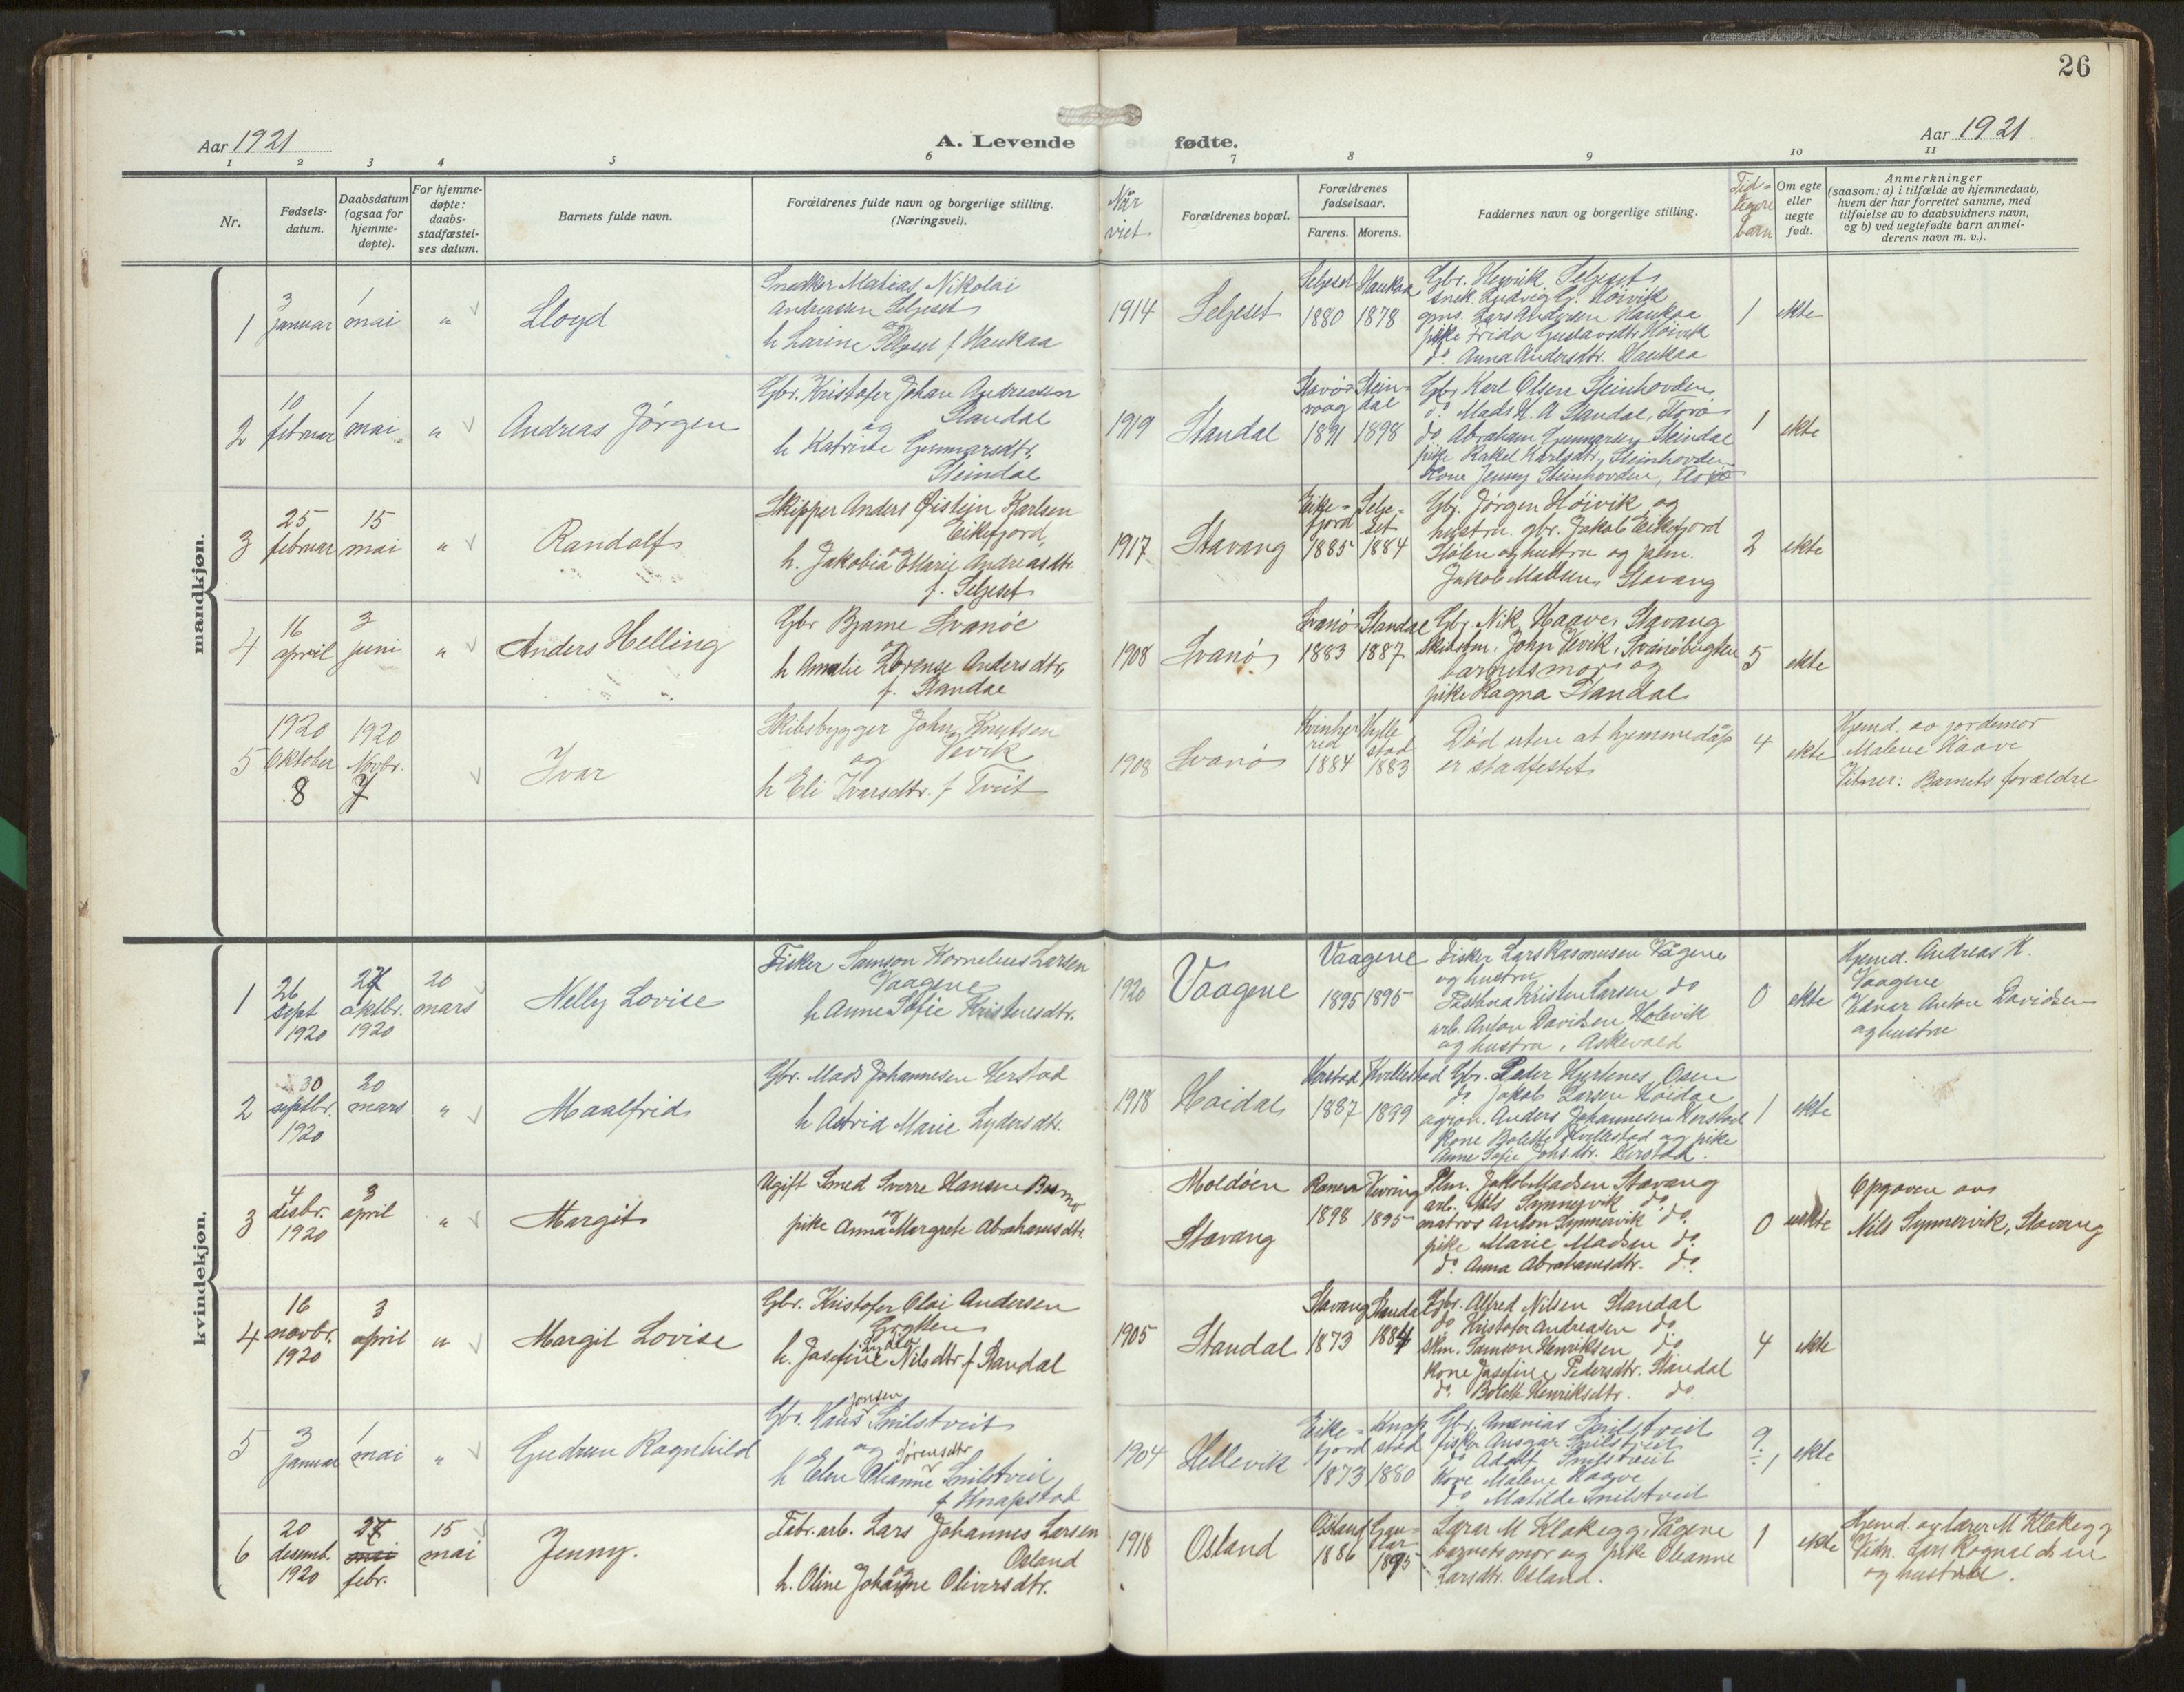 26
Aar 1921
A. Levende fødte.
Aar 1921
1 2 3 4 5 6 7 8 9 10 11
Nr.
Fødsels-
datum.
Daabsdatum
(ogsaa for
hjemme-
døpte).
For hjemme-
døpte:
daabs-
stadfæstel-
ses datum.
Barnets fulde navn.
Forældrenes fulde navn og borgerlige stilling.
(Næringsvei).
Når
viet
Forældrenes bopæl.
Forældrenes
fødselsaar.
Farens. Morens.
Faddernes navn og borgerlige stilling.
Tid-
ligere
barn
Om egte
eller
uegte
født.
Anmerkninger
(saasom: a) i tilfælde av hjemmedaab,
hvem der har forrettet samme, med
tilføielse av to daabsvidners navn,
og b) ved uegtefødte barn anmel-
derens navn m. v.).
mandkjøn.
1
3
januar
1
mai
"
Lloyd
Snedker Matias Nikolai
Andreasen Seljeset
og
h Larine Seljeset f Haukaa
1914
Seljeset
Seljeset
1880
Haukaa
1878
Gbr. Henrik Seljeset
snek. Ludvig G. Høivik
gms. Lars Andersen Haukaa
pike Frida Gustavsdtr Høivik
do Anna Andersdtr. Haukaa
1
ekte
2
10
februar
1
mai
"
Andreas Jørgen
Gbr. Kristofer Johan Andreasen
Standal
og
h Katrine Gunnarsdtr.
Steindal
1919
Standal
Stavøs-
vaag
1891
Stein-
dal
1898
Gbr Karl Olsen Steinhovden
do Mads H. A Standal, Florø
do Abraham Gunnarsen Steindal
pike Rakel Karlsdtr, Steinhovden
Kone Jenny Steinhovden, Florø
1
ekte
3
25
februar
15
mai
"
Randolf
Skipper Anders Øistein Karlsen
Eikefjord
og
h. Jakobia Marie Andreasdtr.
f. Seljeset
1917
Stavang
Eike-
fjord
1885
Selje-
set
1884
Gbr. Jørgen Høivik og
hustru. gbr. Jakob Eikefjord
Stølen og hustru og plm.
Jakob Madsen Stavang
2
ekte
4
16
april
3
juni
"
Anders Helling
Gbr Bjarne Svanøe
og
h Amalie Lorense Andersdtr,
f. Standal
1908
Svanø
Svanø
1883
Standal
1887
Gbr. Nik Haave, Stavang
Skibsbm. John Vevik, Svanøbugten
barnets mor og
pike Ragna Standal
5
ekte
5
1920
Oktober
8
1920
Novbr.
7
Ivar
Skibsbygger John Knutsen
Vevik
og
h Eli Ivarsdtr. f Tveit
1908
Svanø
Kvinhe-
red
1884
Hylle
stad
1883
Død uten at hjemmedåp
er stadfestet
4
ekte
Hjemd. av jordemor
Malene Haave
Vitner: Barnets forældre
kvindekjøn.
1
26
sept
1920
27
oktbr.
1920
20
mars
Nelly Lovise
Fisker Samson Kornelius Larsen
Vaagene
h Anne Sofie Kristensdtr.
1920
Vaagene
Vaagene
1895 1895
Fisker Lars Rasmussen Vågene
og hustru
Kristen Larsen do
arb. Anton Davidsen Holevik
og hustru, Askevold
0
ekte
Hjemd. Andreas K.
Vaagene
Vidner Anton Davidsen
og hustru
2
30
septbr.
1920
20
mars
"
Maalfrid
Gbr. Mads Johannesen Herstad
h Astrid Marie Lydersdtr.
1918
Høidal
Herstad
1887
Kvellestad
1899
Gbr. Peter Hjertenes, Osen
do Jakob Larsen Høidal
agron. Anders Johannesen Herstad
Kone Bolette Kvellestad og pike
Anne Sofie Johs.dtr. Herstad.
1
ekte
3
4
desbr.
1920
3
april
"
Margit
Ugift Smed Sverre Hansen Bu
og
pike Anna Margrete Abrahamsdtr
Moldøen
Stavang
Ranen
1898
Vevring
1895
Plm. Jakob Madsen Stavang
arb. Nils Synnervik do.
matros Anton Synnervik do.
pike Marie Madsen do.
do. Anna Abrahamsdtr. do.
0
uekte
Opgaven av
Nils Synnervik, Stavang
4
16
novbr.
1920
3
april
"
Margit Lovise
Gbr. Kristofer Olai Andersen
Grytten
h. Josefine Nilsdtr f Standal
1905
Standal
Stavang
1873
Standal
1884
Gbr. Alfred Nilsen Standal
do Kristofer Andreasen do
skm. Samson Henriksen do
Kone Josefine Pedersdtr. Standal
do. Bolette Henriksdtr. do
4
ekte
5
3
januar
1
mai
"
Gudrun Ragnhild
Jonsen
Gbr. Hans Smilstveit
og Sørensdtr
h Elen Oleanne Smilstveit
f Knapstad
1904
Hellevik
Eike-
fjord
1873
Knap
stad
1880
Gbr. Ananias Smilstveit
fisker Ansgar Smilstveit
do Adolf Smilstveit
Kone Malene Haave
do Matilde Smilstveit
9
1
ekte
6
20
desemb.
1920
27
mai
febr.
15
mai
Jenny.
Fabr.arb. Lars Johannes Larsen
Osland
og
h. Oline Johanne Oliversdtr.
1918
Osland
Osland
1886
1895
Lærer M Klakegg, Vågene
barnets mor og pike Oleanne
Larsdtr. Osland.
1
ekte
Hjemd. av lærer M Klakegg
Vidn. Lars Rognaldsen
og hustru.